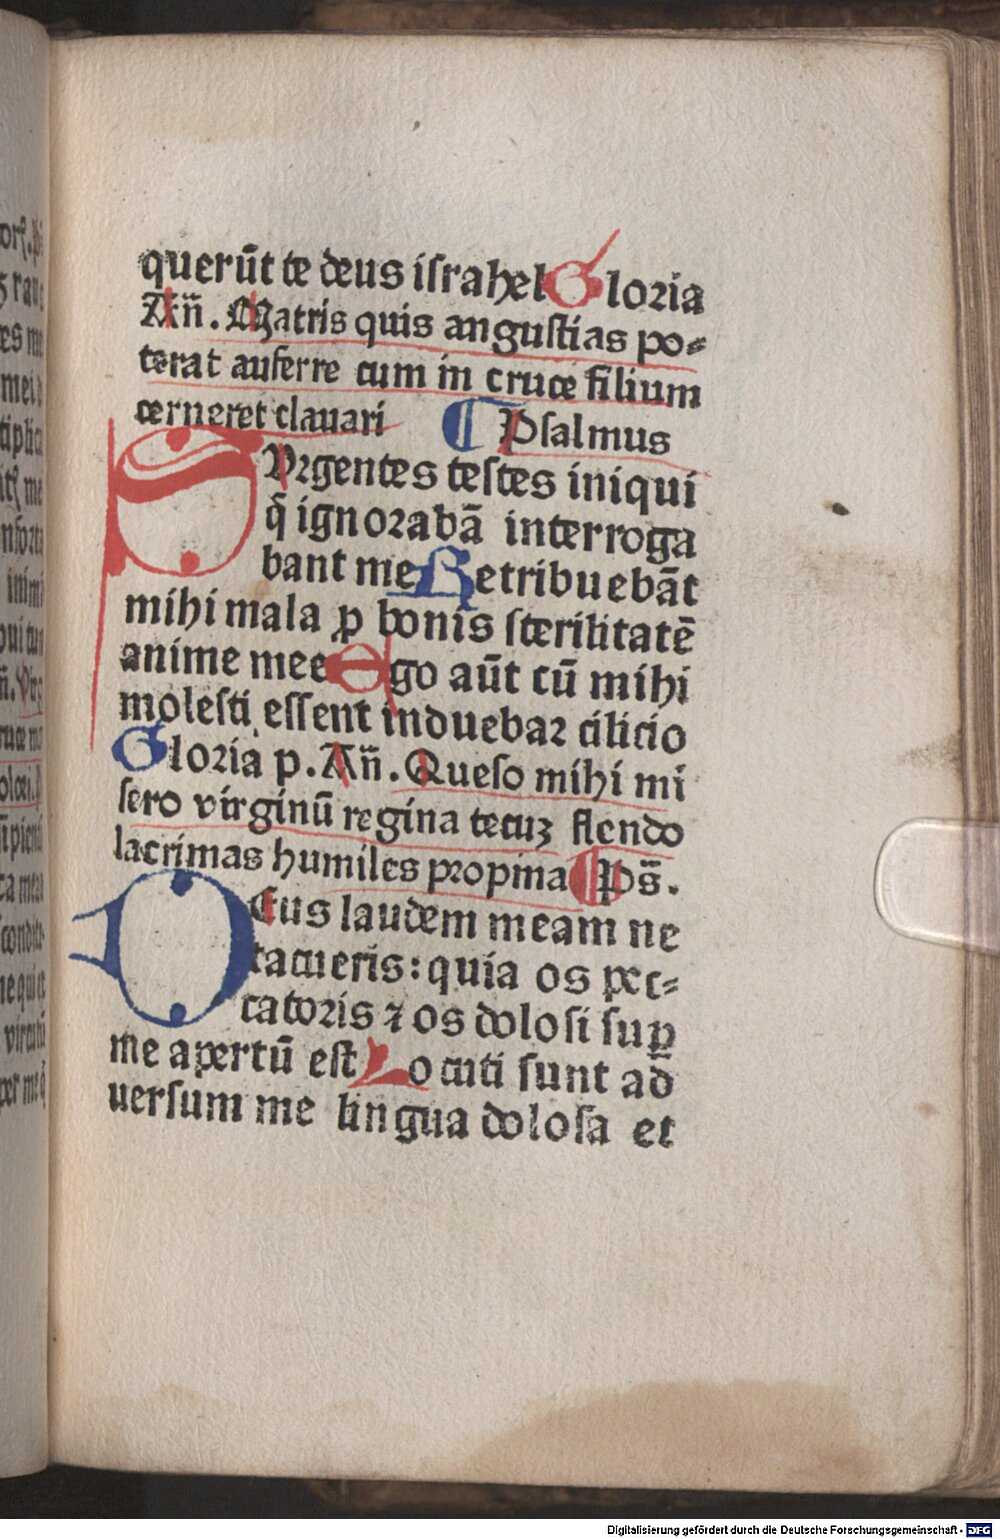 querūt te deus iſrahel Gloria
An̄. Matris quis anguſtias po⸗
terat auferre cum in cruce filium
cerneret clauari ⸿ Pſalmus
SVrgentes teſtes iniqui
q̄ ignorabā interroga
bant me Retribuebāt
mihi mala ꝓ bonis ſterilitatē
anime mee Ego aūt cū mihi
moleſti eſſent induebar cilicio
Gloria p. An̄. Queſo mihi mi
ſero virginū regina tecuꝫ flendo
lacrimas humiles propina ⸿ Ps̄.
DEus laudem meam ne
tacueris: quia os pec⸗
catoris ⁊ os doloſi ſuꝑ
me apertū eſt Locuti sunt ad̄
uerſum me lingua doloſa et
Digitalisierung gefördert durch die Deutsche Forschungsgemeinschaft - DFG